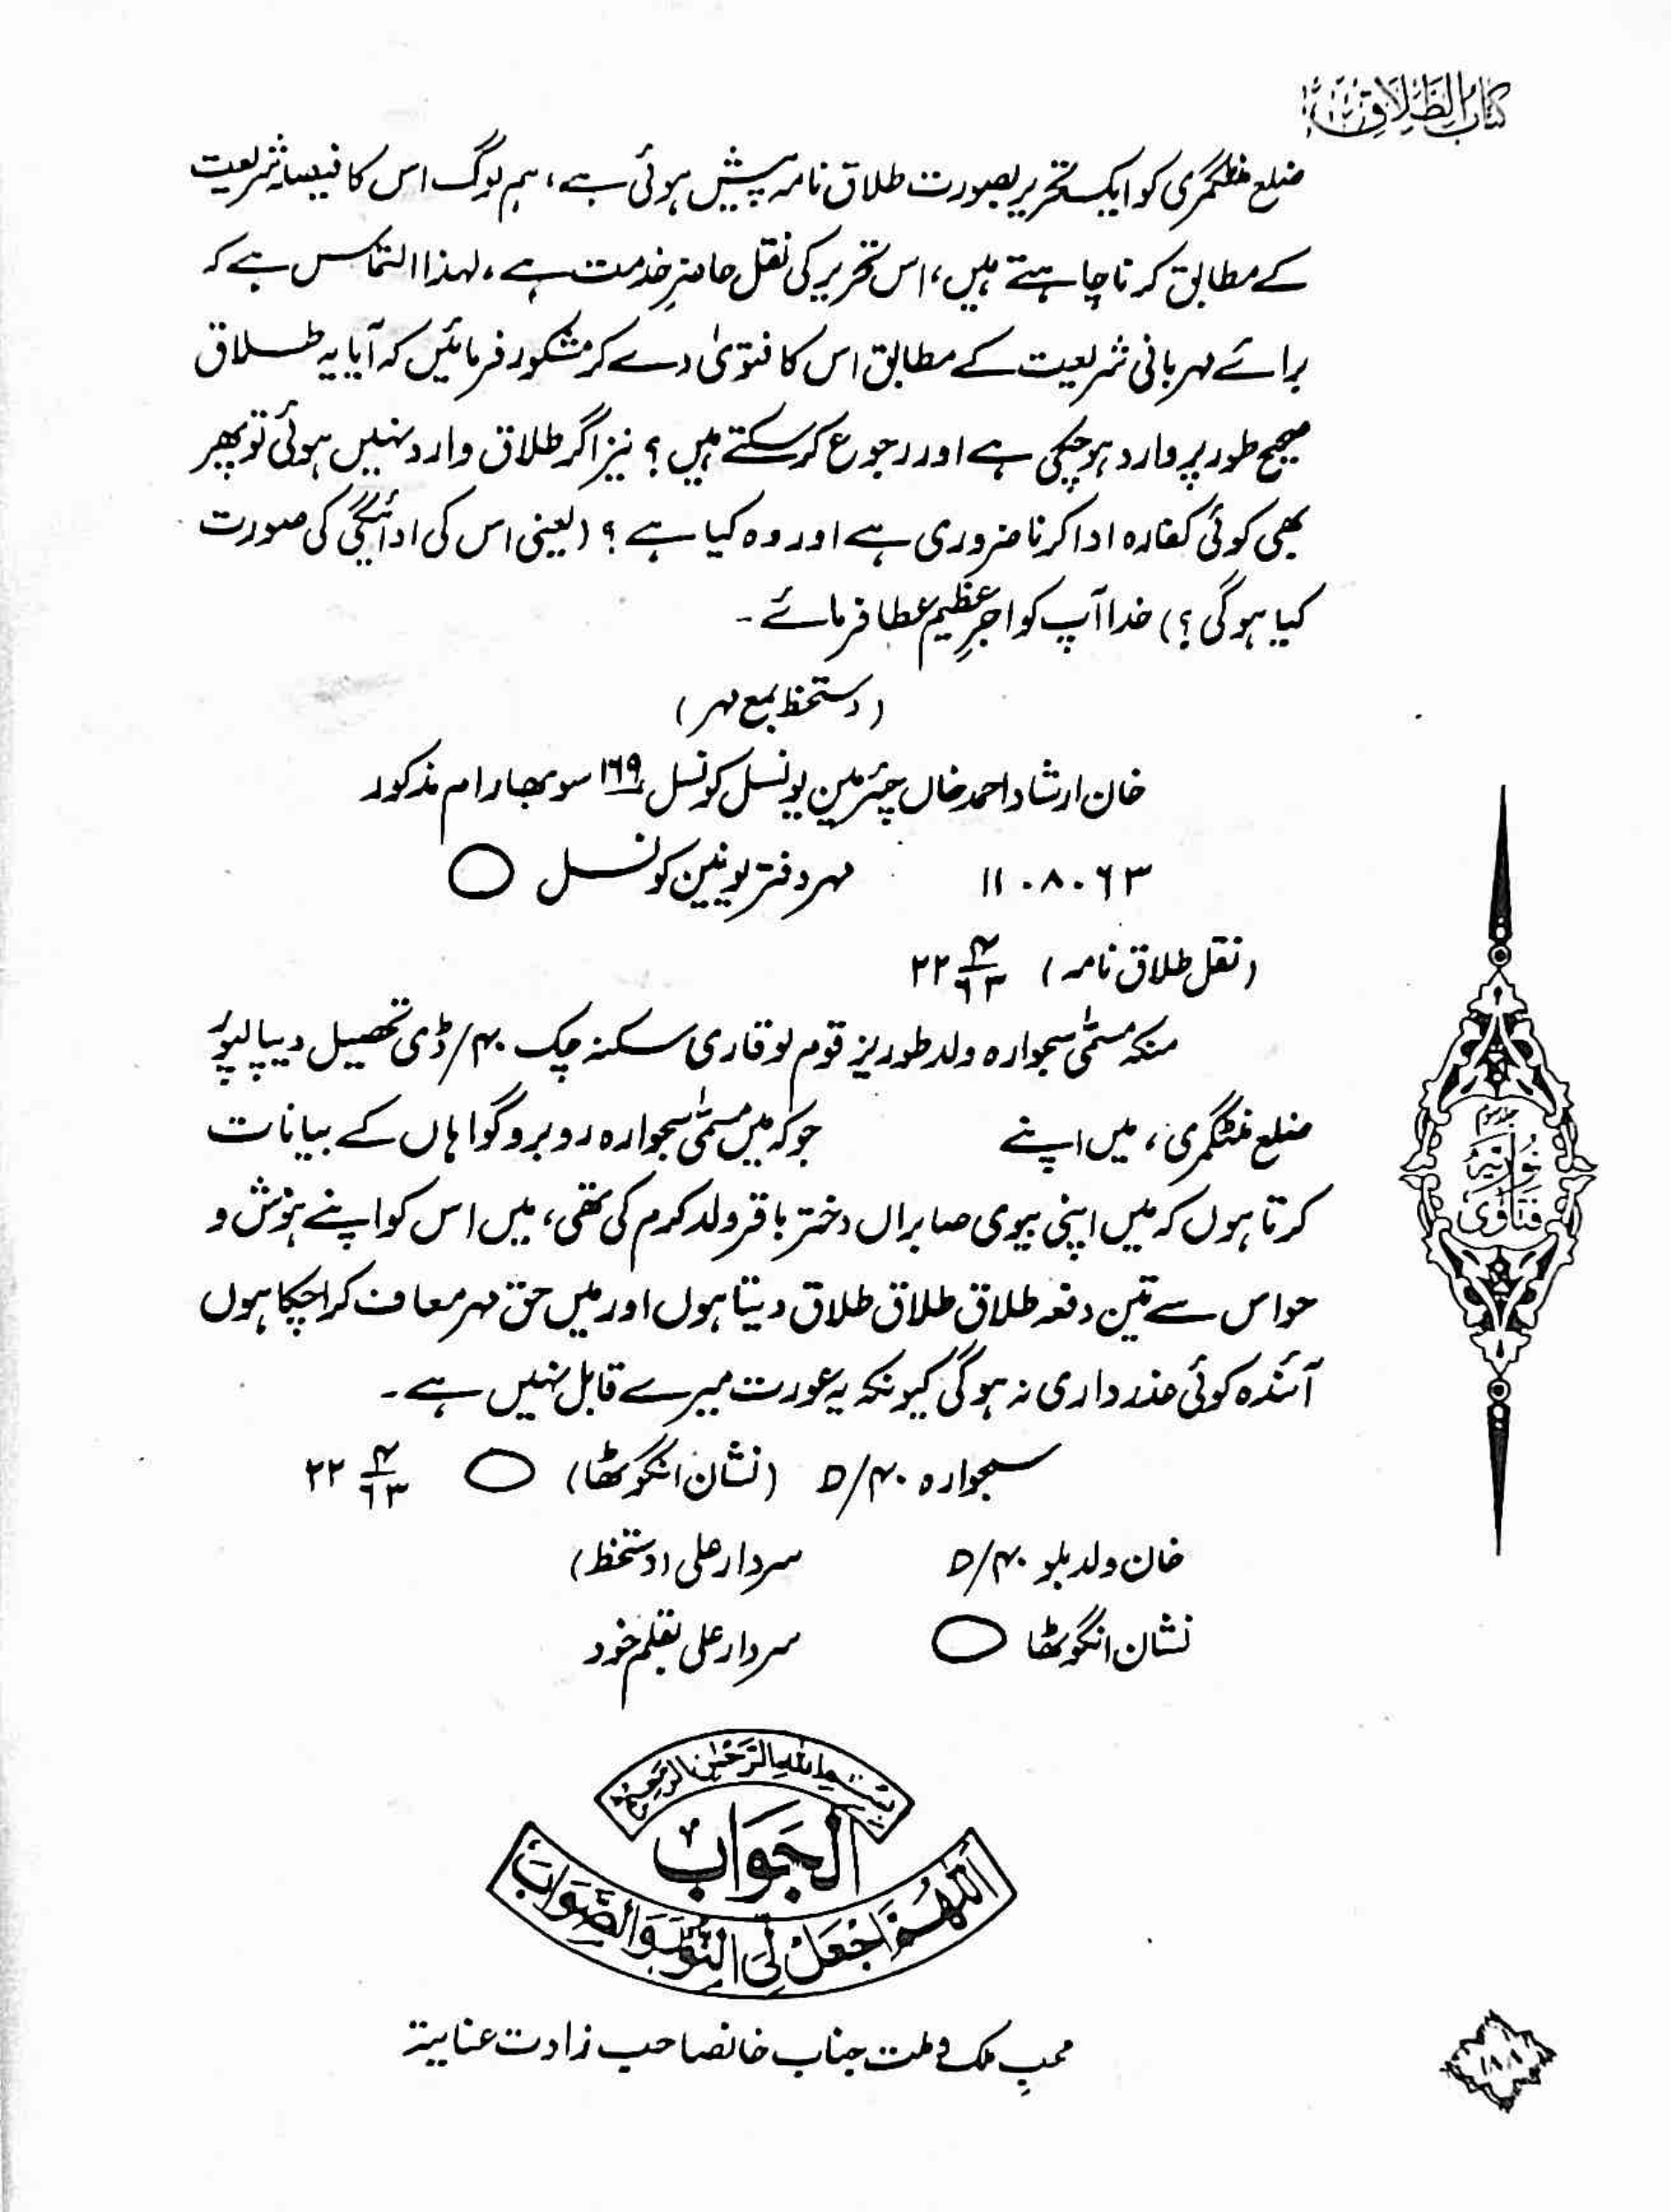 کتاب الطلاق
ضلع منٹگمری کو ایک تحریر بصورت طلاق نامہ پیش ہوئی ہے، ہم لوگ اس کا فیصلہ شریعت
کے مطابق کرنا چاہتے ہیں، اس تحریر کی نقل حاضرِ خدمت ہے، لہذا التماس ہے کہ
برائے مہربانی شریعت کے مطابق اس کا فتویٰ دے کر مشکور فرمائیں کہ آیا یہ طلاق
صحیح طور پر وارد ہو چکی ہے اور رجوع کر سکتے ہیں؟ نیز اگر طلاق وارد نہیں ہوئی تو پھر
بھی کوئی کفارہ ادا کرنا ضروری ہے اور وہ کیا ہے؟ (یعنی اس کی ادائیگی کی صورت
کیا ہوگی؟) خدا آپ کو اجرِ عظیم عطا فرمائے۔
(دستخط بمع مہر)
خان ارشاد احمد خاں چیئرمین یونسل کونسل ۱۶۹ سوبھا رام مذکور
۱۱.۸.۶۳ مہر دفتر یونین کونسل
(نقل طلاق نامہ) ۲۲/۴/۶۳
منکہ مسمّٰی سجوارہ ولد طوریز قوم لوقاری سکنہ چک ۴۰/ڈی تحصیل دیپالپور
ضلع منٹگمری، میں اپنے جو کہ میں مسمّٰی سجوارہ روبرو گواہاں کے بیانات
کرتا ہوں کہ میں اپنی بیوی صابراں دختر باقر ولد کرم کی تھی، میں اس کو اپنے ہوش و
حواس سے تین دفعہ طلاق طلاق طلاق دیتا ہوں اور میں حق مہر معاف کرا چکا ہوں
آئندہ کوئی عذر داری نہ ہوگی کیونکہ یہ عورت میرے قابل نہیں ہے۔
سجوارہ ۴۰/D (نشان انگوٹھا) ۲۲/۴/۶۳
خان ولد بلو ۴۰/D سردار علی (دستخط)
نشان انگوٹھا سردار علی بقلم خود
فتاویٰ نوریہ
بسم اللہ الرحمٰن الرحیم
الجواب
اللّٰھم اجعل لی النور والصواب
محبِ ملک و ملت جناب خانصاحب زادت عنایتہ
۱۸۸